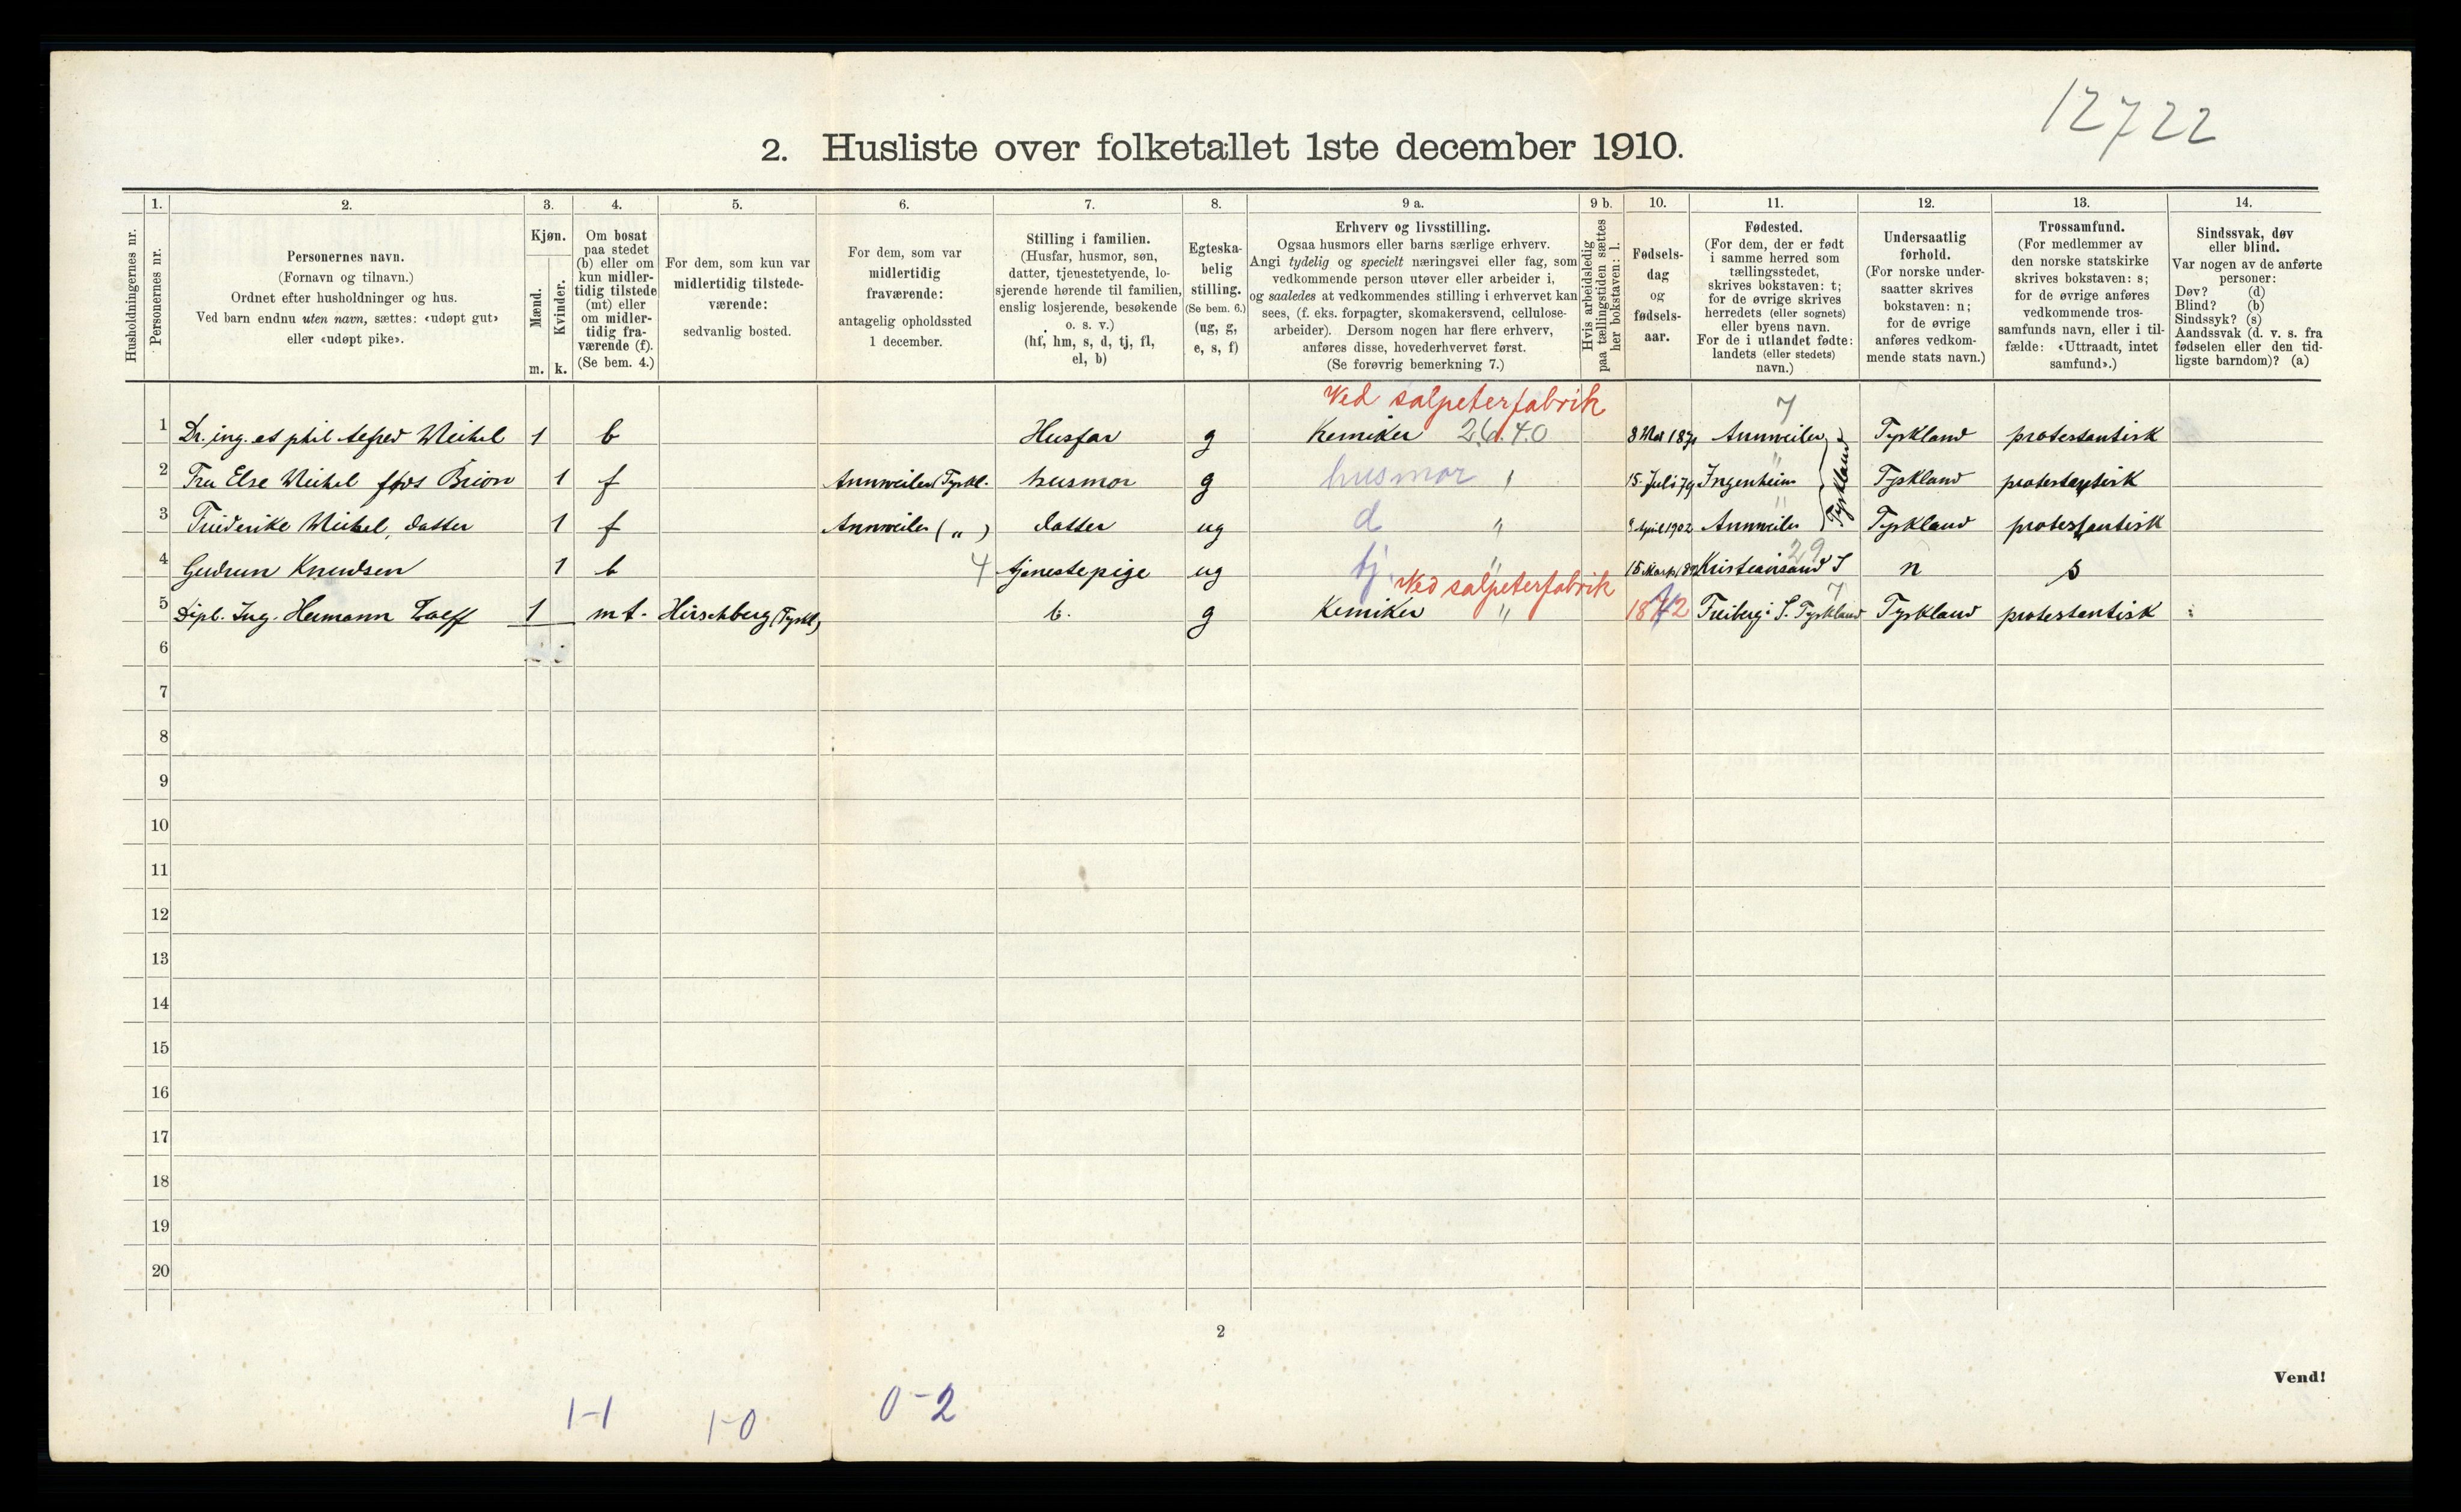 12722
2. Husliste over folketallet 1ste december 1910.
Husholdningernes nr.
1.
Personernes nr.
2.
Personernes navn.
(Fornavn og tilnavn.)
Ordnet efter husholdninger og hus.
Ved barn endnu uten navn, sættes: «udøpt gut»
eller «udøpt pike».
3.
Kjøn.
Mænd.
Kvinder.
m. k.
4.
Om bosat
paa stedet
(b) eller om
kun midler-
tidig tilstede
(mt) eller
om midler-
tidig fra-
værende (f).
(Se bem. 4.)
5.
For dem, som kun var
midlertidig tilstede-
værende:
sedvanlig bosted.
6.
For dem, som var
midlertidig
fraværende:
antagelig opholdssted
1 december.
7.
Stilling i familien.
(Husfar, husmor, søn,
datter, tjenestetyende, lo-
sjerende hørende til familien,
enslig losjerende, besøkende
o. s. v.)
(hf, hm, s, d, tj, fl,
el, b)
8.
Egteska-
belig
stilling.
(Se bem. 6.)
(ug, g,
e, s, f)
9 a.
Erhverv og livsstilling.
Ogsaa husmors eller barns særlige erhverv.
Angi tydelig og specielt næringsvei eller fag, som
vedkommende person utøver eller arbeider i,
og saaledes at vedkommendes stilling i erhvervet kan
sees, (f. eks. forpagter, skomakersvend, cellulose-
arbeider). Dersom nogen har flere erhverv,
anføres disse, hovederhvervet først.
(Se forøvrig bemerkning 7.)
9 b.
Hvis arbeidsledig
paa tællingstiden sættes
her bokstaven: l.
10.
Fødsels-
dag
og
fødsels-
aar.
11.
Fødested.
(For dem, der er født
i samme herred som
tællingsstedet,
skrives bokstaven: t;
for de øvrige skrives
herredets (eller sognets)
eller byens navn.
For de i utlandet fødte:
landets (eller stedets)
navn.)
12.
Undersaatlig
forhold.
(For norske under-
saatter skrives
bokstaven: n;
for de øvrige
anføres vedkom-
mende stats navn.)
13.
Trossamfund.
(For medlemmer av
den norske statskirke
skrives bokstaven: s;
for de øvrige anføres
vedkommende tros-
samfunds navn, eller i til-
fælde: «Uttraadt, intet
samfund».)
14.
Sindssvak, døv
eller blind.
Var nogen av de anførte
personer:
Døv? (d)
Blind? (b)
Sindssyk? (s)
Aandssvak (d. v. s. fra
fødselen eller den tid-
ligste barndom)? (a)
Ved salpeterfabrik 7
1 Dr. ing. et phil Alfred Weihel 1 b Husfar g Kemiker 26.40 Annweiler Tyskland protestantisk
2 Fru Else Weihel føds Brion 1 f Annweiler (Tyskl. husmor g husmor " 15 Juli 79 Ingenheim " Tyskland protestantisk
Tyskland
3 Friederike Weihel, datter 1 f Annweiler ( " ) datter ug d " April 1902 Annweiler " Tyskland protestantisk
29
4 Gudrun Knudsen 1 b 4 tjenestepige ug tj. " Kristiansand S n s
Ved salpeterfabrik 7
5 Dipl. Ing. Hermann 1 mt. Hirschberg (Tyskl) b. g Kemiker " Freiberg i S. Tyskland Tyskland protestantisk
6
7
8
9
10
11
12
13
14
15
16
17
18
19
20
2
Vend!
1-1 1-0 0-2